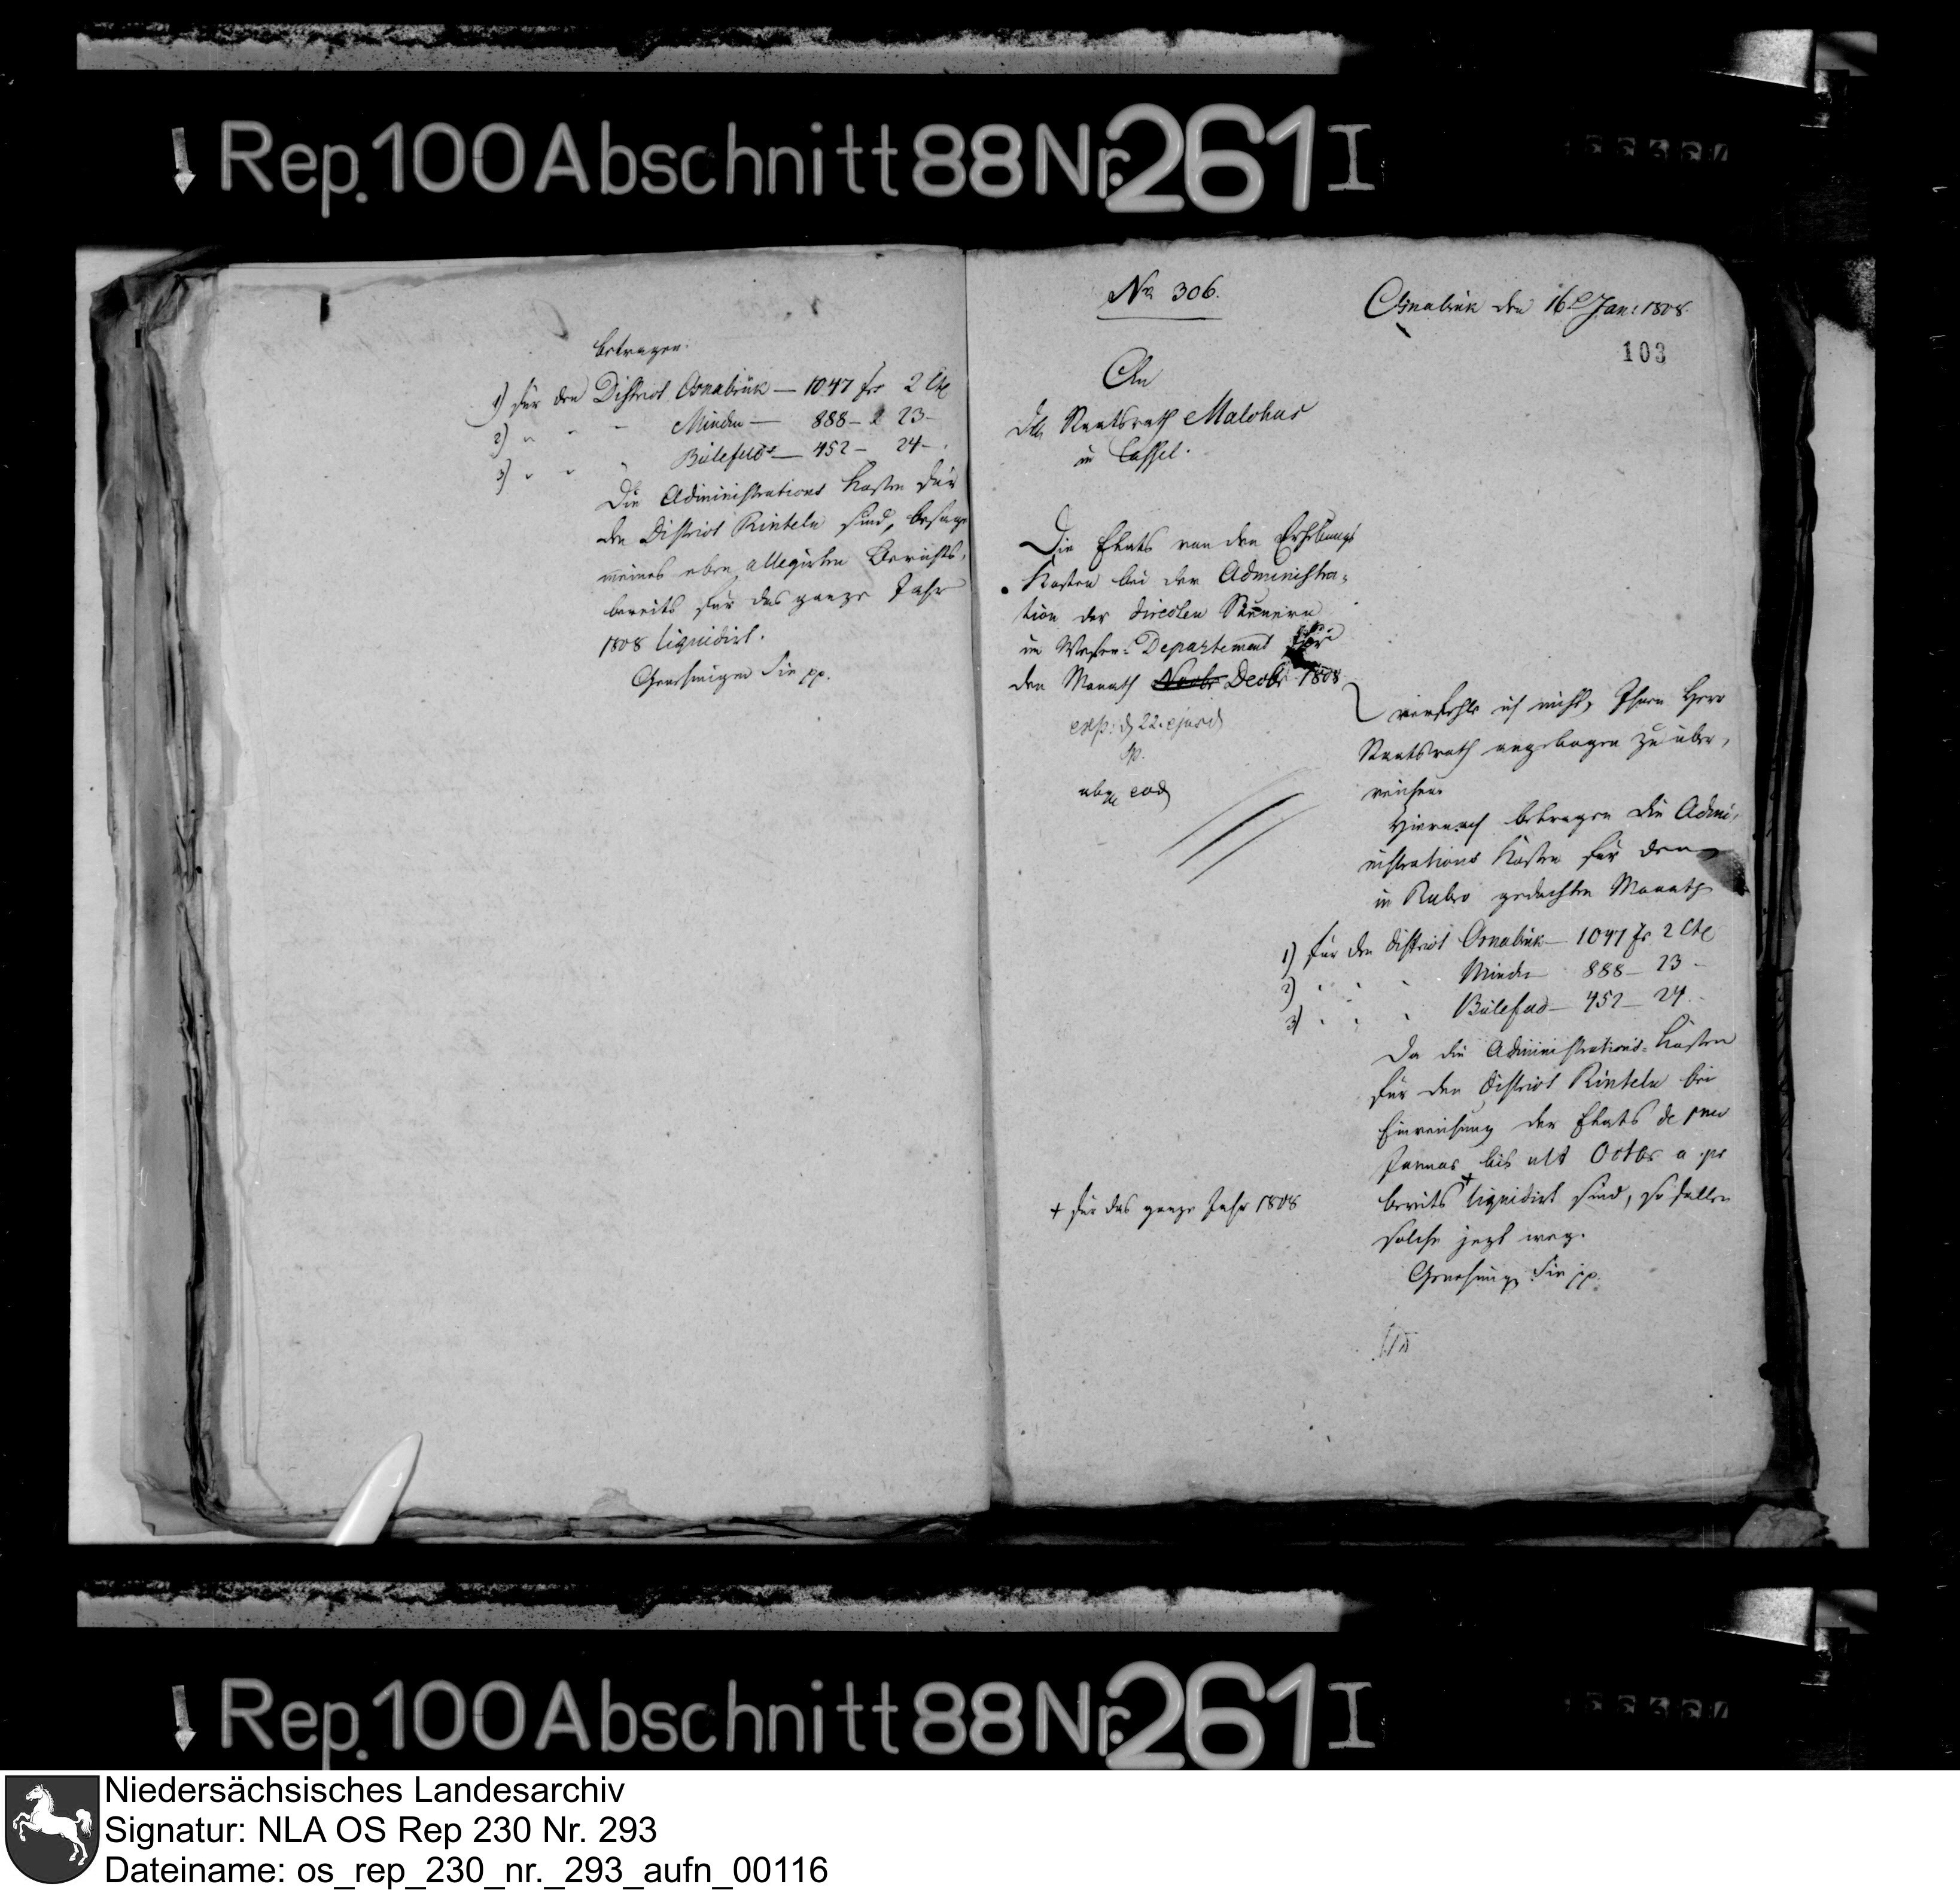 Rep. 100 Abschnitt 88 Nr. 261 I
betragen.
1) für den District Osnabrük — 1047 frs 2 Cts
2) " " " Minden — 888 — 23 —
3) " " " Bielefeld — 452 — 24 —
Die Administrations Kosten für
den District Rinteln sind, besage
meines eben allegirten Berichts,
bereits für das ganze Jahr
1808 liquidirt.
Genehmigen Sie pp.
No 306.
Osnabrük den 16t Jan: 1808.
103
An
Staatsrath Malchus
in Cassel.
Die Etats von den Erhebungs
Kosten bei der Administra-
tion der directen Steuern
im Weser-Departement für
den Monath Novbr Decbr 1808
exp: d 22. ejusd
abg. eod
verfehle ich nicht, Ihnen Herr
Staatsrath angebogen zu über-
reichen.
Hiernach betragen die Admi-
nistrations Kosten für den
in Rubro gedachten Monath
1) für den District Osnabrük — 1047 fr 2 Cts
2) " " " Minden — 888 — 23 —
3) " " " Bielefeld — 452 — 24 —
Da die Administrations-Kosten
für den District Rinteln bei
Einreichung der Etats de
Januar bis ult Octbr a. pr
bereits + liquidirt sind, so fallen
solche jezt weg.
+ für das ganze Jahr 1808
Genehmigen Sie pp.
Rep. 100 Abschnitt 88 Nr. 261 I
Niedersächsisches Landesarchiv
Signatur: NLA OS Rep 230 Nr. 293
Dateiname: os_rep_230_nr._293_aufn_00116